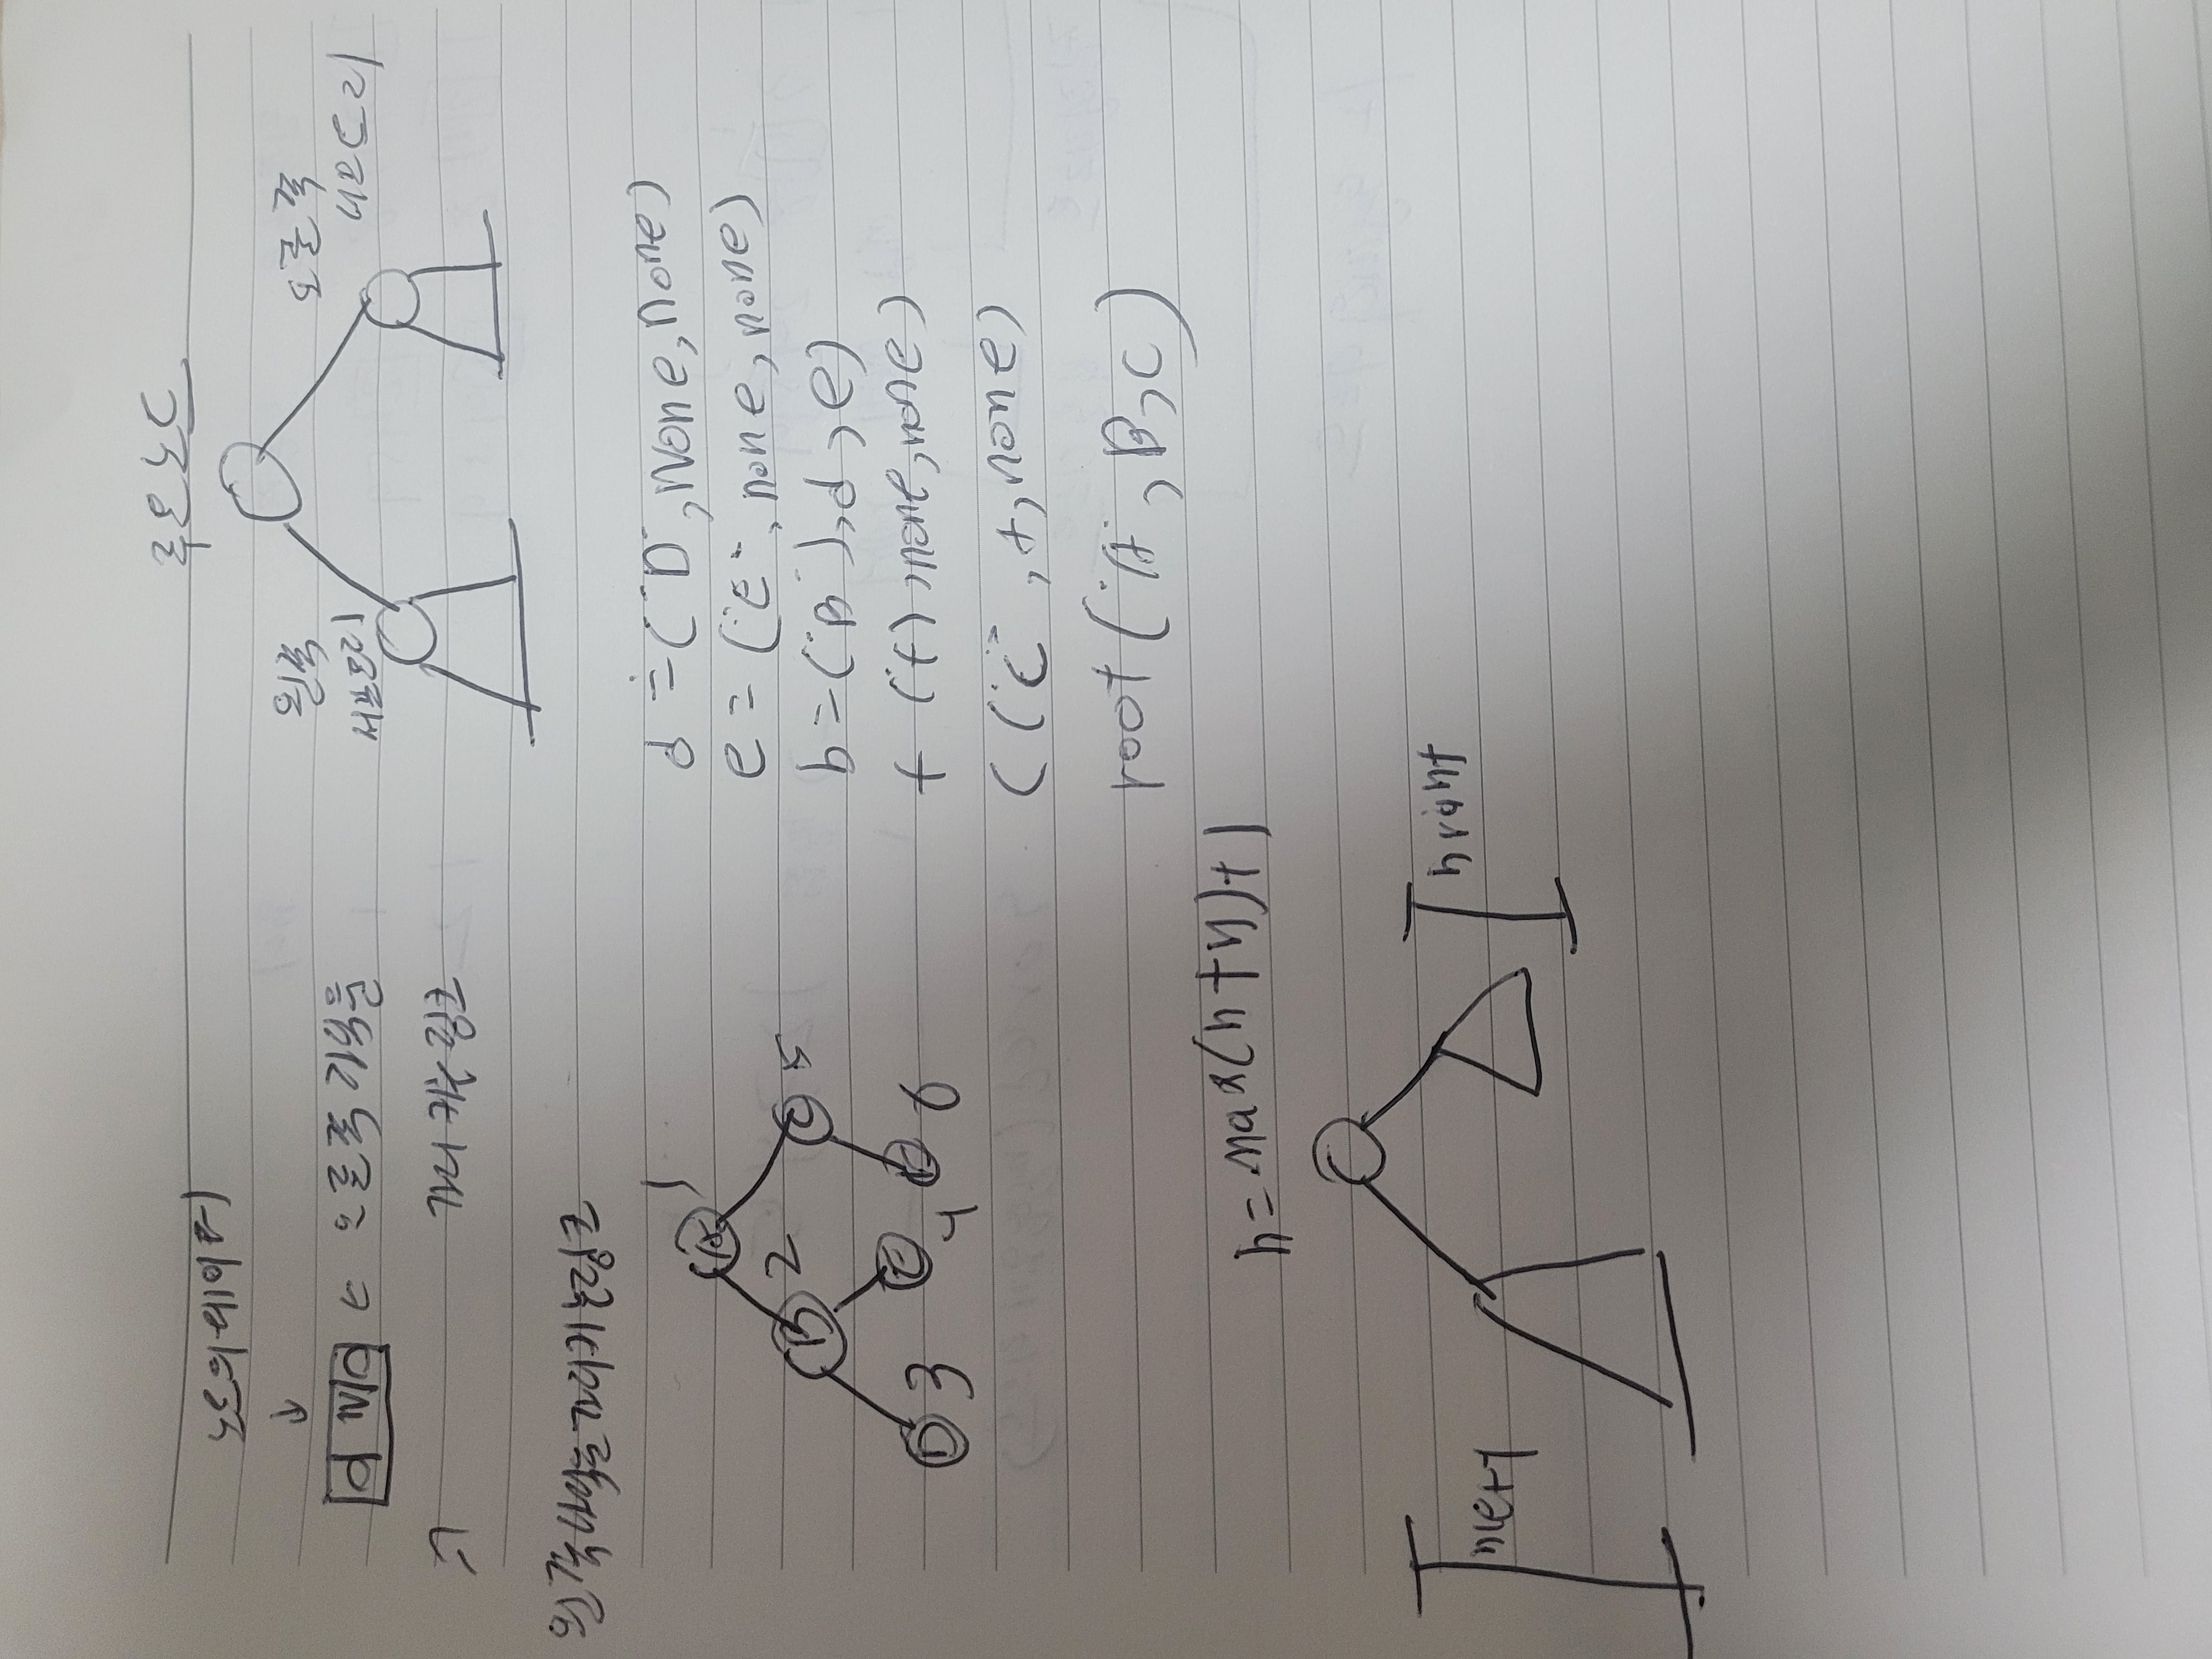 노드의 데이터
↓
← 오른쪽 자식을
가리키는 링크
↗
왼쪽 자식을 가리키는 링크
루트노드
왼쪽
서브트리
오른쪽
서브트리
A 1
B 2
C 5
D 3
E 4
6
d = ("D", None, none)
e = ("E", none, none)
b = ("B"), d, e)
f (f), none, none)
( ("C", f, none)
root ("A", B, C)
h = max(h + h) + 1
hleft
hright